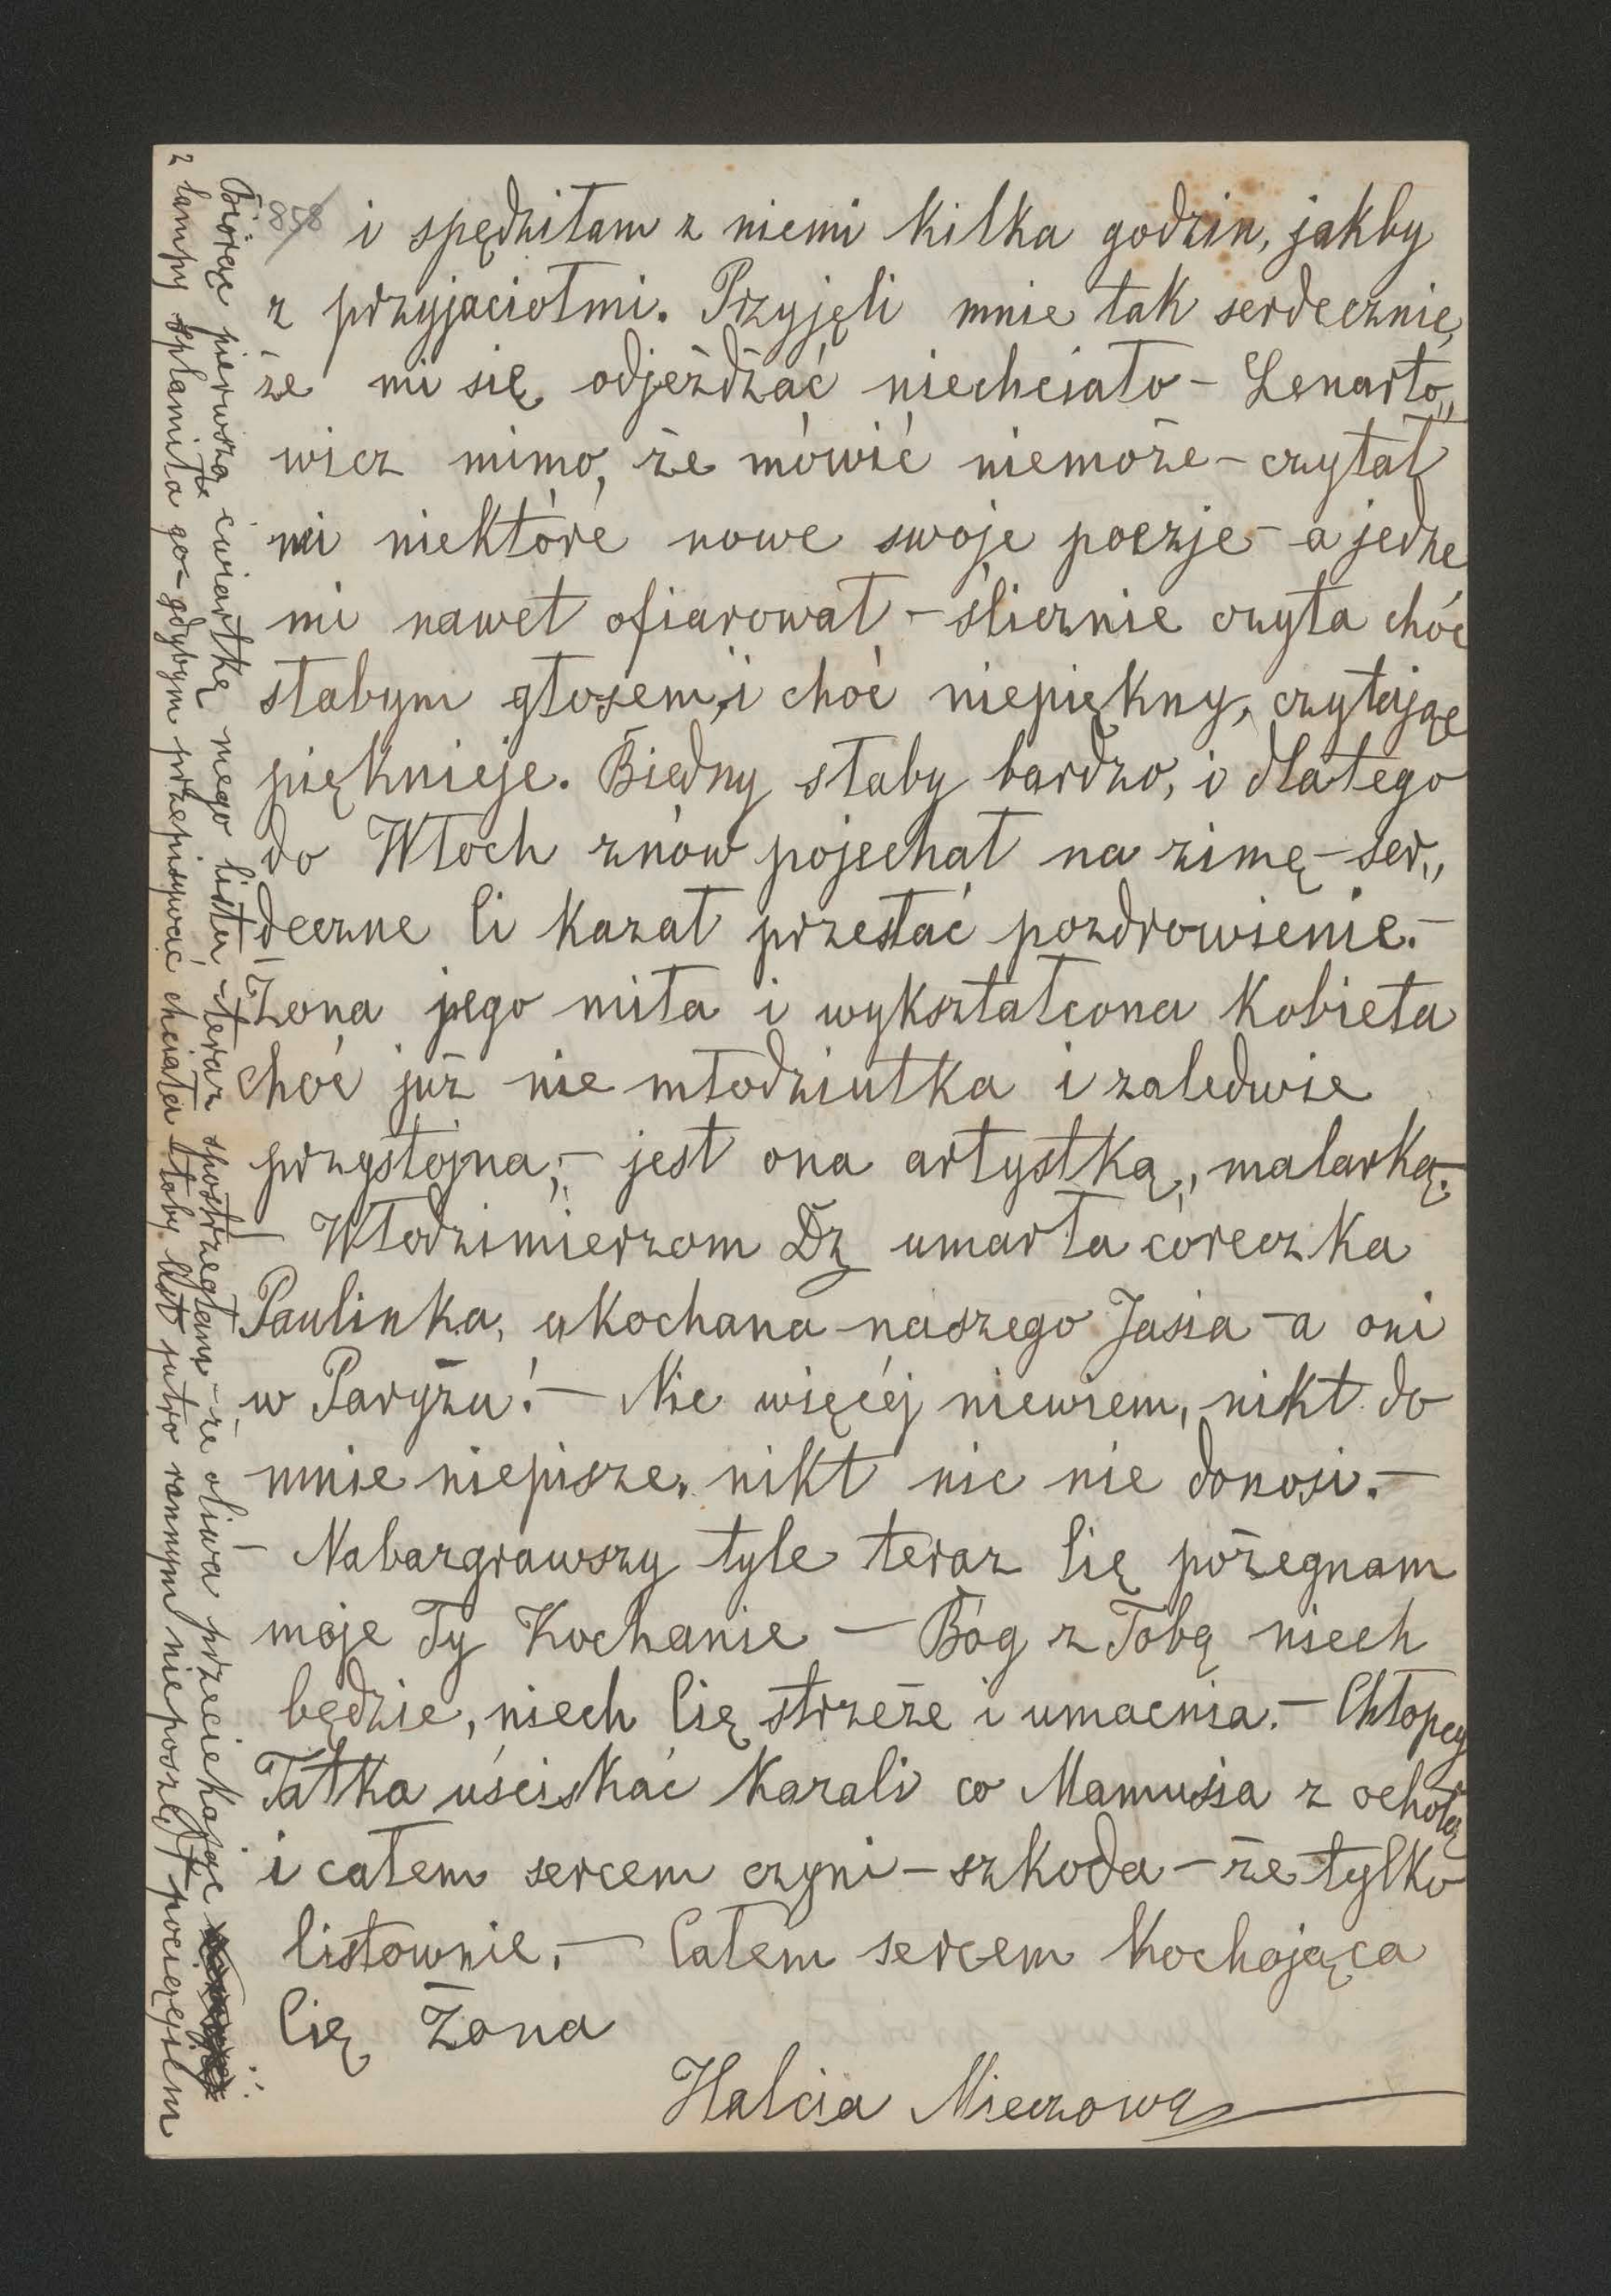 858
i spędziłam z niemi kilka godzin, jakby
z przyjaciołmi. Przyjęli mnie tak serdecznie,
że mi się odjeżdżać niechciało - Lenarto„
wicz mimo, że mówić niemoże - czytał
mi niektóre nowe swoje poezje - a jedne
mi nawet ofiarował - ślicznie czyta choć
słabym głosem, i choć niepiękny, czytając
pięknieje. Biedny słaby bardzo, i dlatego
do Włoch znów pojechał na zimę - ser„
deczne Ci kazał przesłać pozdrowienie. -
Żona jego miła i wykształcona kobieta
choć już nie młodziutka i zaledwie
przystojna, - jest ona artystką, malarką. -
Włodzimierzom Dz umarła córeczka
Paulinka, ukochana naszego Jasia - a oni
w Paryżu! - Nic więcéj niewiem, nikt do
mnie niepisze, nikt nic nie donosi. -
Nabazgrawszy tyle teraz Cię pożegnam
moje Ty Kochanie - Bóg z Tobą niech
będzie, niech Cię strzeże i umacnia. - Chłopcy
Tatka uściskać kazali co Mamusia z ochotą
i całem sercem czyni - szkoda - że tylko
listownie. - Całem sercem kochająca
Cię Żona
Halcia Mieczowa
Biorąc pierwszą ćwiartkę mego listu - teraz spostrzegłam - że oliwa przeciekając
z lampy splamiła go - gdybym przepisywać chciała toby list jutro rannym nieposzedł pociągiem